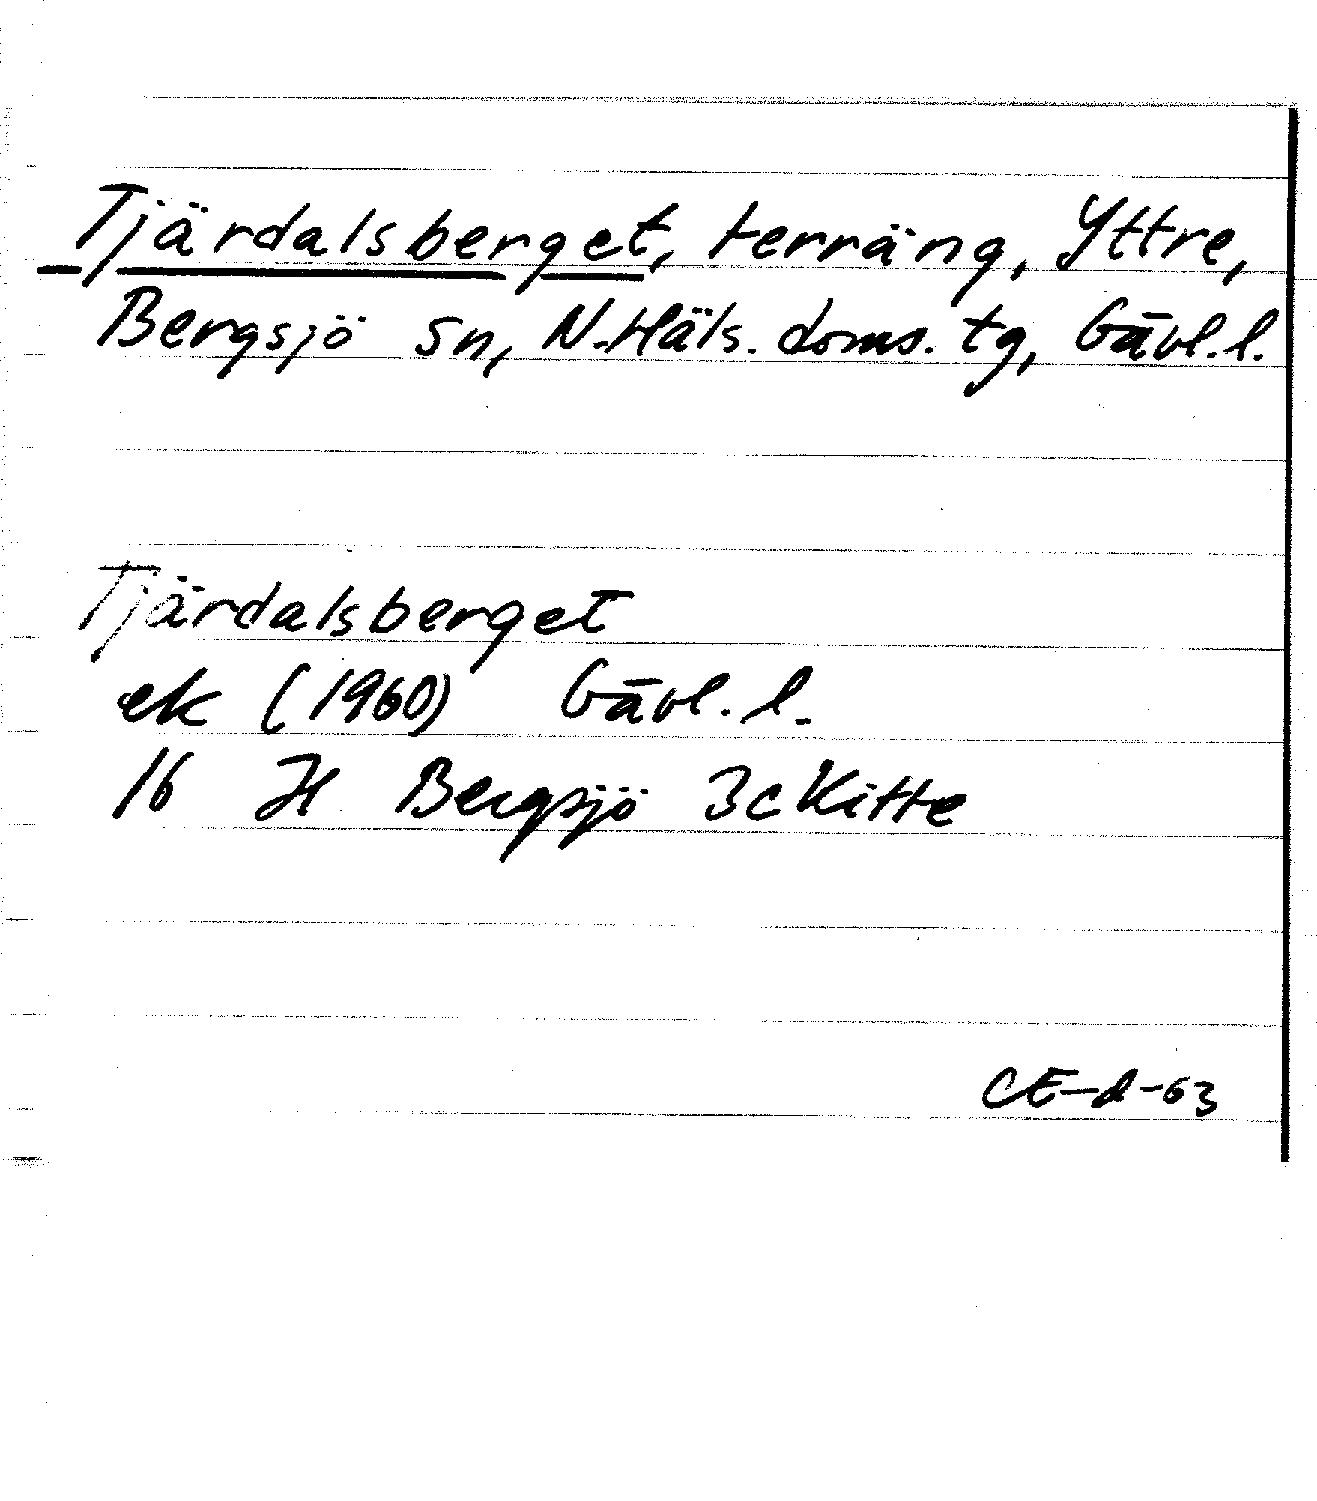 Tjärdalsberget, terräng, Yttre,
Bergsjö sn, N.Häls. doms. tg, Gävl.l.
Tjärdalsberget
ek (1960) Gävl.l.
16 H Bergsjö 3c Kitte
CE-d-63